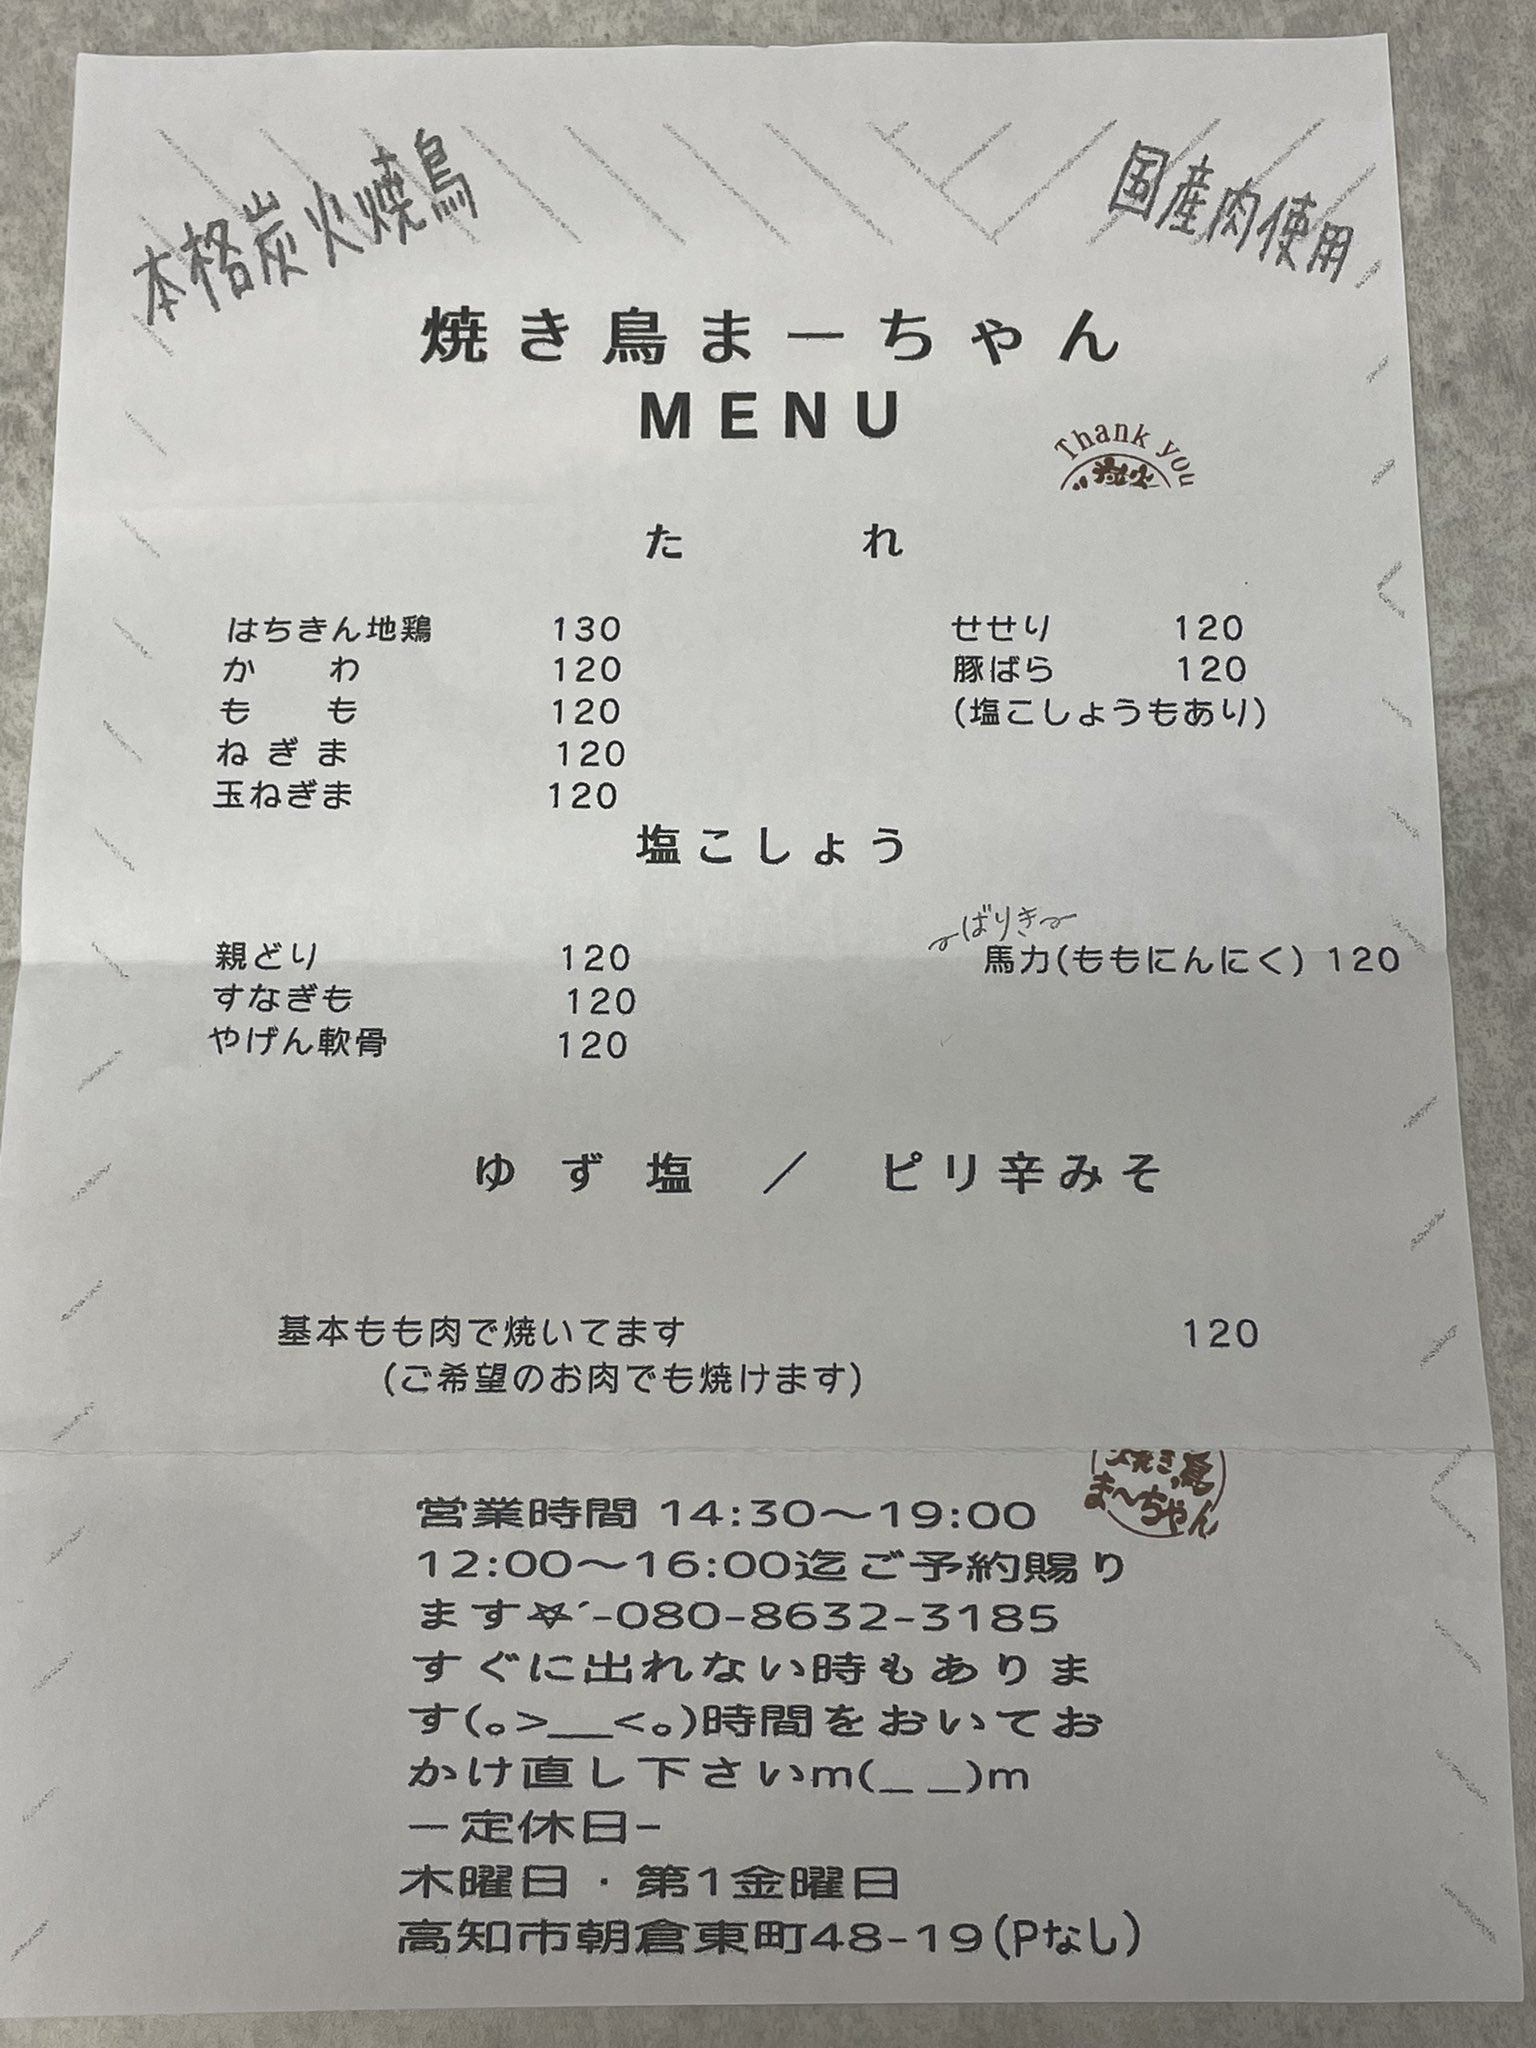 本格炭火焼鳥
国産肉使用
焼き鳥まーちゃん
MENU
Thank you
たれ
はちきん地鶏 130
かわ 120
もも 120
ねぎま 120
玉ねぎま 120
せせり 120
豚ばら 120
(塩こしょうもあり)
塩こしょう
親どり 120
すなぎも 120
やげん軟骨 120
ばりき
馬力(ももにんにく) 120
ゆず塩 / ピリ辛みそ
基本もも肉で焼いてます 120
(ご希望のお肉でも焼けます)
焼き鳥
ま〜ちゃん
営業時間 14:30〜19:00
12:00〜16:00迄ご予約賜り
ます⛧´-080-8632-3185
すぐに出れない時もありま
す(｡>__<｡)時間をおいてお
かけ直し下さいm(_ _)m
ー定休日-
木曜日・第1金曜日
高知市朝倉東町48-19(Pなし)